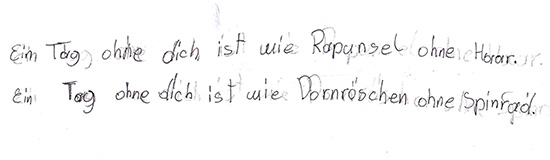 Ein Tag ohne dich ist wie Rapunsel ohne Haar.
Ein Tag ohne dich ist wie Dornröschen ohne Spinrad.